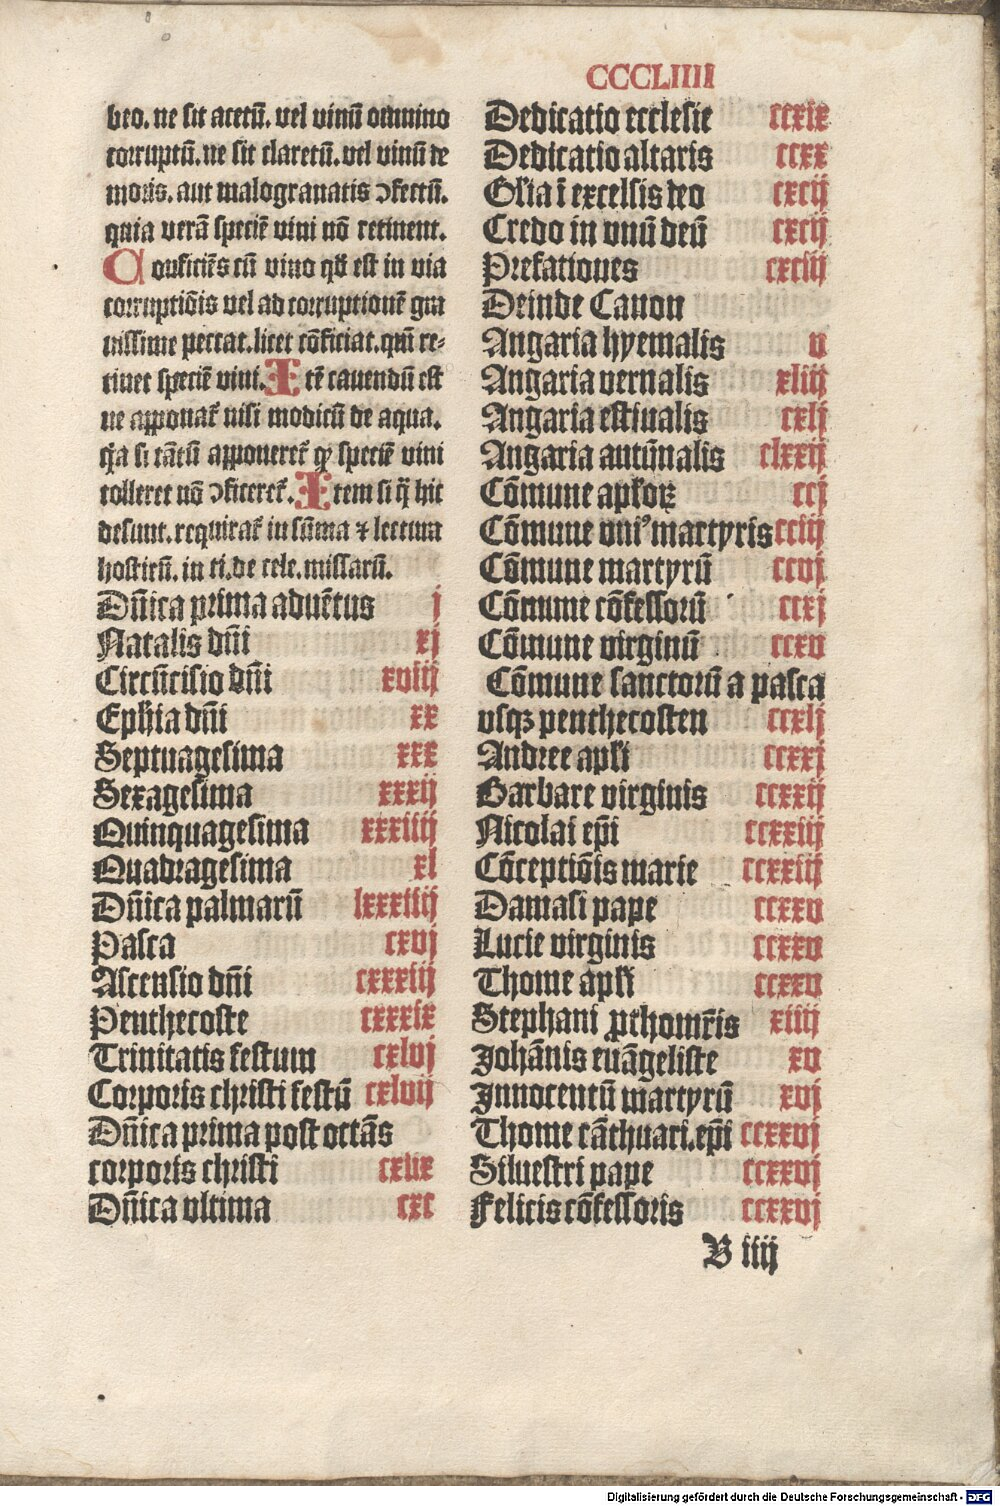 CCCLIIII
beo. ne sit acetū. vel vinū omnino
corruptū. ne sit claretū. vel vinū de
moris. aut malogranatis ↄfectū.
quia verā speciē vini nō retinent.
Conficiēs cū vino qđ est in via
corruptiōis vel ad corruptionē gra
uissime peccat. licet cōficiat. qm̄ re-
tinet speciē vini. Itē cauendū est
ne apponat᷑ nisi modicū de aqua.
q̇a si tātū apponeret᷑ qꝫ speciē vini
tolleret nō ↄficeret᷑. Item si q̄ hic
desunt. requirat᷑ in sūma ⁊ lectura
hostieū. in ti. de cele. missarū.
Dn̄ica prima aduētus j
Natalis dn̄i xj
Circūcisio dn̄i xviij
Ephīa dn̄i xx
Septuagesima xxx
Sexagesima xxxij
Quinquagesima xxxiiij
Quadragesima xl
Dn̄ica palmarū lxxxiiij
Pasca cxvj
Ascensio dn̄i cxxxiij
Penthecoste cxxxix
Trinitatis festum cxlvj
Corporis christi festū cxlvij
Dn̄ica prima post octās
corporis christi cxlix
Dn̄ica vltima cxc
Dedicatio ecclesie ccxix
Dedicatio altaris ccxx
Gl'ia ī excelsis deo cxcij
Credo in vnū deū cxcij
Prefationes cxciij
Deinde Canon
Angaria hyemalis v
Angaria vernalis xliij
Angaria estiualis cxlj
Angaria autūnalis clxxij
Cōmune apl'oꝝ ccj
Cōmune vniꝰ martyris cciij
Cōmune martyrū ccvj
Cōmune cōfessorū ccxj
Cōmune virginū ccxv
Cōmune sanctorū a pasca
vsqꝫ penthecosten ccxlj
Andree apl'i ccxxj
Barbare virginis ccxxij
Nicolai ep̄i ccxxiij
Cōceptiōis marie ccxxiij
Damasi pape ccxxv
Lucie virginis ccxxv
Thome apl'i ccxxv
Stephani ꝓthomr̄is xiiij
Johānis euāgeliste xv
Innocentū martyrū xvj
Thome cāthuari. ep̄i ccxxvj
Siluestri pape ccxxvj
Felicis cōfessoris ccxxvj
B iiij
Digitalisierung gefördert durch die Deutsche Forschungsgemeinschaft - DFG